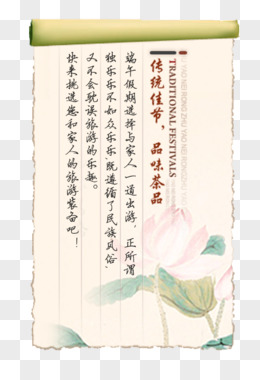 传统佳节，品味茶品
TRADITIONAL FESTIVALS
端午假期选择与家人一道出游，正所谓
独乐乐不如众乐乐，既遵循了民族风俗，
又不会耽误旅游的乐趣。
快来挑选您和家人的旅游装备吧！